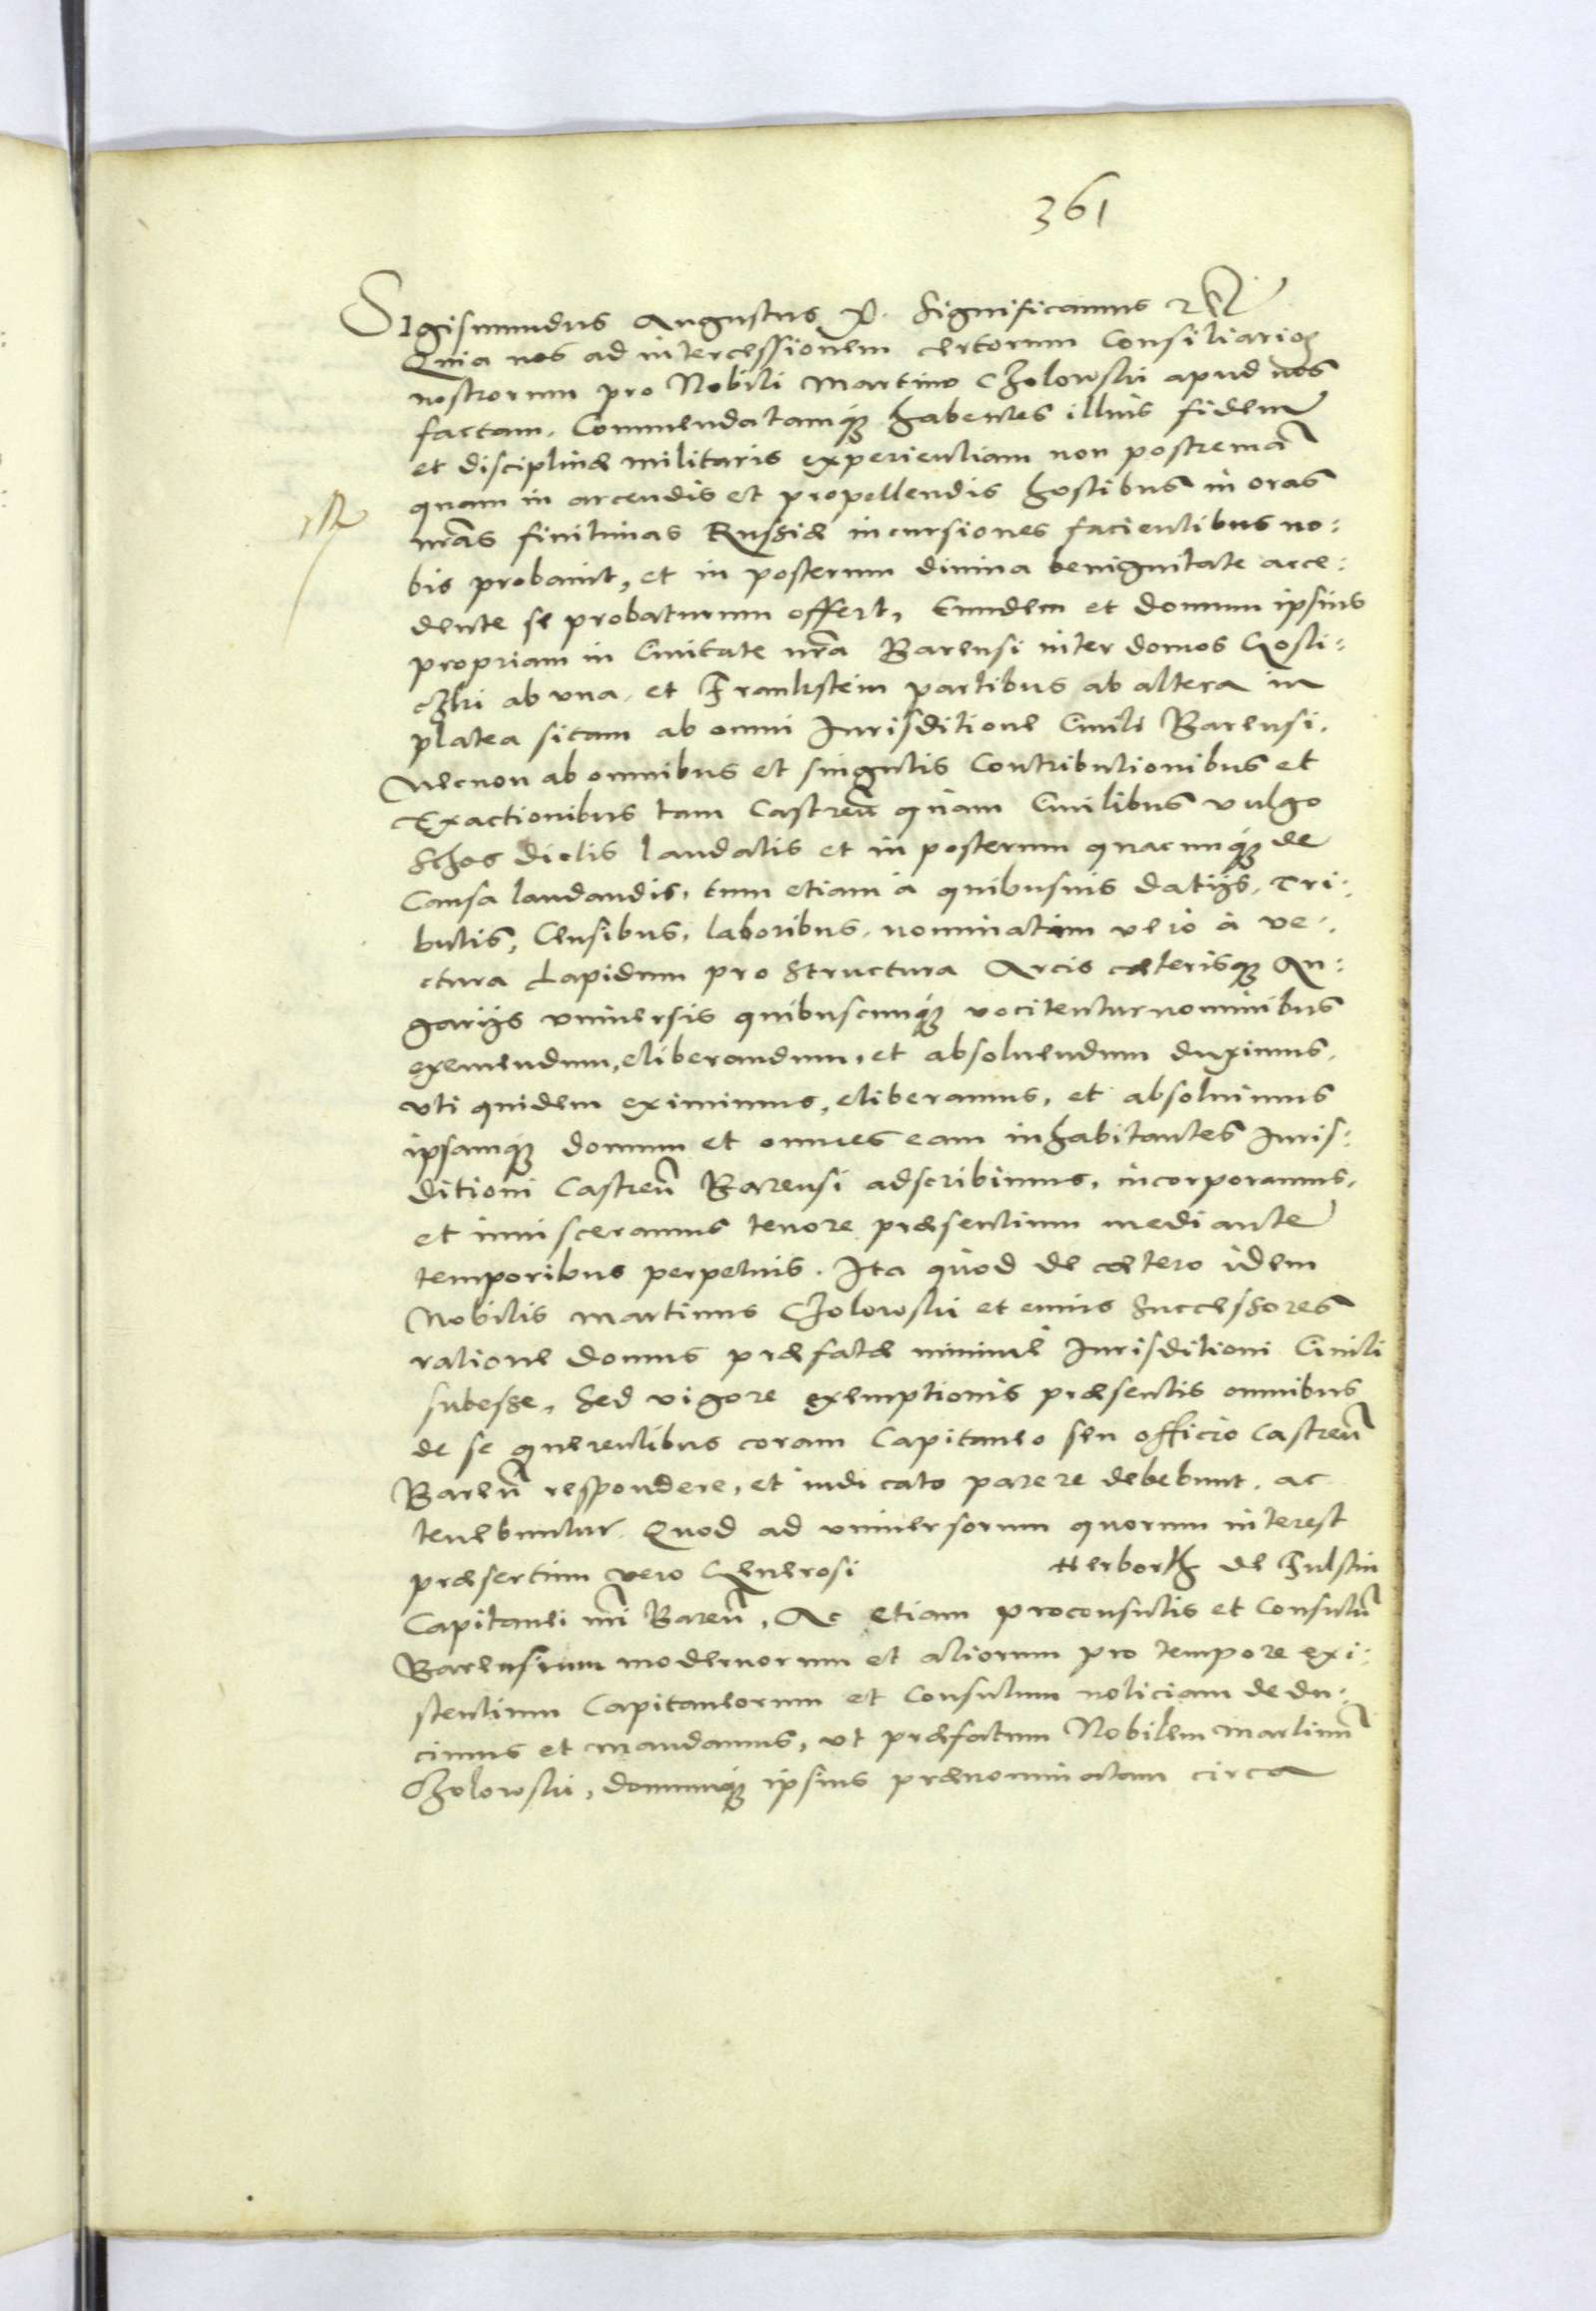 361
Sigismundus Augustus etc. Significamus etc.
Quia nos ad intercessionem certorum Consiliarioꝝ
nostrorum pro Nobili Martino Czolowski apud nos
factam. Commendatamq́ꝫ habentes illius fidem
et disciplinæ militaris experientiam non postremā
quam in arcendis et propellendis hostibus in oras
nr̃as finitimas Russiæ incursiones facientibus no:
bis probauit, et in posterum diuina benignitate acce:
dente se probaturum offert, Eundem et domum ipsius
propriam in Ciuitate nr̃a Barensi inter domos Gosli:
czki ab vna, et Frankstein partibus ab altera in
platea sitam ab omni Jurisditione Ciuili Barensi.
Necnon ab omnibus et singulis Contributionibus et
Exactionibus tam Castreñ quàm Ciuilibus vulgo
Schos dictis laudatis et in posterum quacunq́ꝫ de
Causa laudandis, tum etiam à quibusuis datijs, Tri:
butis, Censibus, laboribus, nominatim verò à ve:
ctura Lapidum pro structura Arcis cæterisqꝫ An:
garijs vniuersis quibuscunq́ꝫ vocitentur nominibus
eximendum, eliberandum, et absoluendum duximus,
vti quidem eximimus, eliberamus, et absoluimus
ipsamq́ꝫ domum et omnes eam inhabitantes Juris:
ditioni Castreñ Barensi adscribimus, incorporamus,
et inuisceramus tenore præsentium mediante
temporibus perpetuis. Ita quòd de cætero idem
Nobilis Martinus Czolowski et eiuius Successores
ratione domus præfatæ minimè Jurisditioni Ciuili
subesse, Sed vigore exemptionis præsentis omnibus
de se querentibus coram Capitaneo seu officio Castreñ
Bareñ respondere, et iudicato parere debebunt. ac
tenebuntur. Quod ad vniuersorum quorum interest
præsertim vero Generosi Herborth de Fulstin
Capitanei nr̃i Bareñ, Ac etiam proconsulis et Consulũ
Barensium modernorum et aliorum pro tempore exi:
stentium Capitaneorum et Consulum noticiam dedu:
cimus et mandamus, vt præfatum Nobilem Martinũ
Czolowski, domumq́ꝫ ipsius prænominatam circa